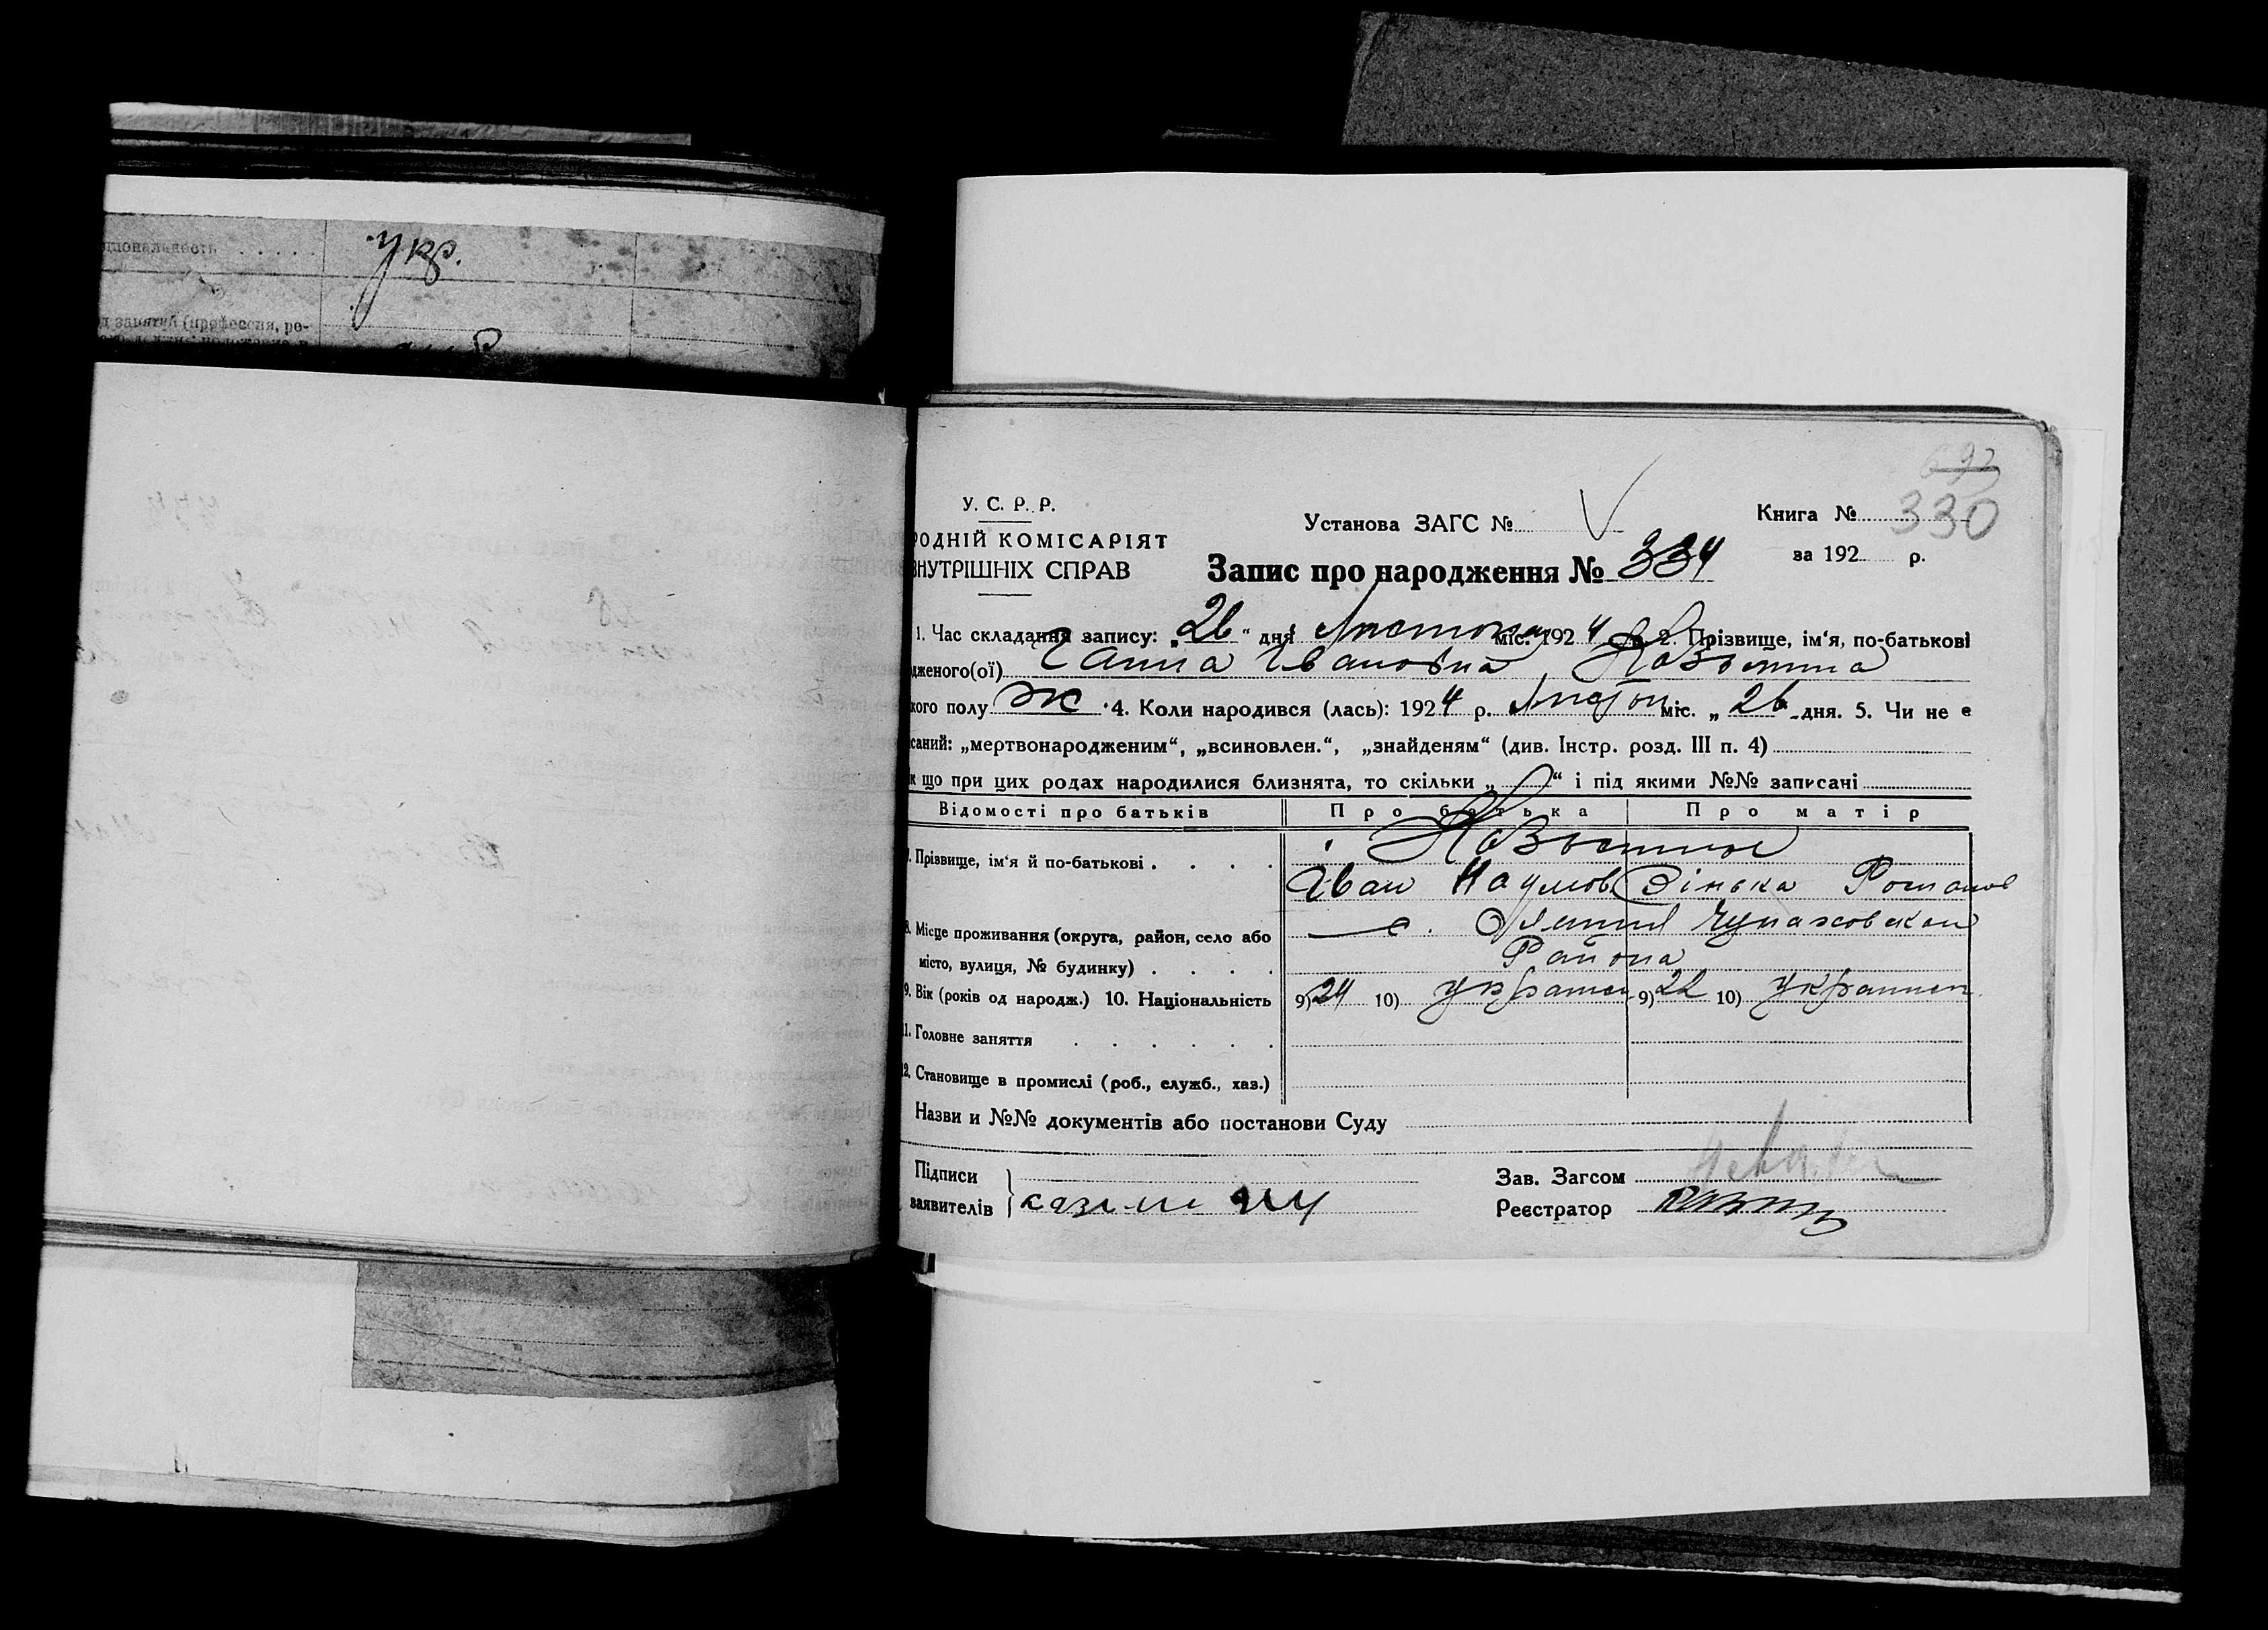 ціональність . . . . .
укр.
занятий (профессия, ре-
692
330
У. С. Р. Р.
РОДНІЙ КОМІСАРІЯТ
ВНУТРІШНІХ СПРАВ
Установа ЗАГС №
Книга №
за 192 р.
Запис про народження № 334
1. Час складання запису: „26“ дня Листопад міс. 1924 р. 2. Прізвище, ім‘я, по-батькові
дженого(ої) Ганна Івановна Козьмина
кого полу Ж 4. Коли народився (лась): 1924 р. Листоп міс. „26 дня. 5. Чи не е
саний: „мертвонародженим“, „всиновлен.“, „знайденям“ (див. Інстр. розд. III п. 4)
к що при цих родах народилися близнята, то скільки „ “ і під якими №№ записані
Відомості про батьків Про батька Про матір
7. Прізвище, ім‘я й по-батькові . . . .
Іван Наумов. Зінька Роман
8. Місце проживання (округа, район, село або
місто, вулиця, № будинку) . . . .
с. Чупаховскои
Района
9. Вік (років од народж.) 10. Національність 9) 24 10) украин 9) 22 10) украинн
11. Головне заняття . . . . . .
12. Становище в промислі (роб., служб., хаз.)
Назви и №№ документів або постанови Суду
Підписи
заявителів
Зав. Загсом
Реєстратор